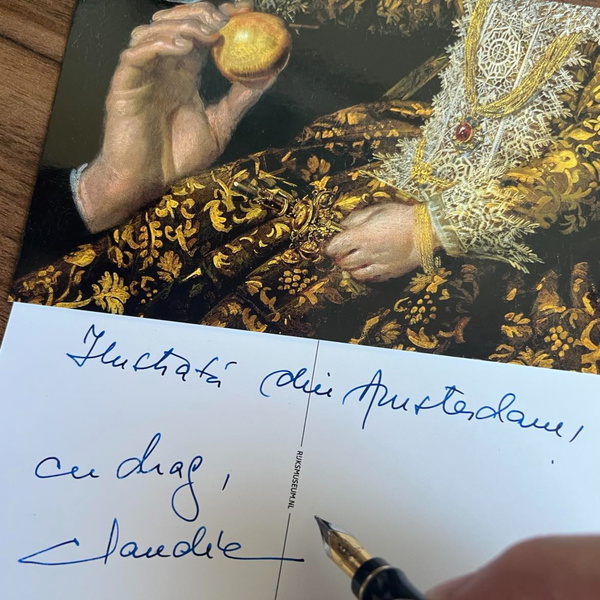 Ilustrată din Amsterdam,
cu drag,
Claudia
RIJKSMUSEUM.NL